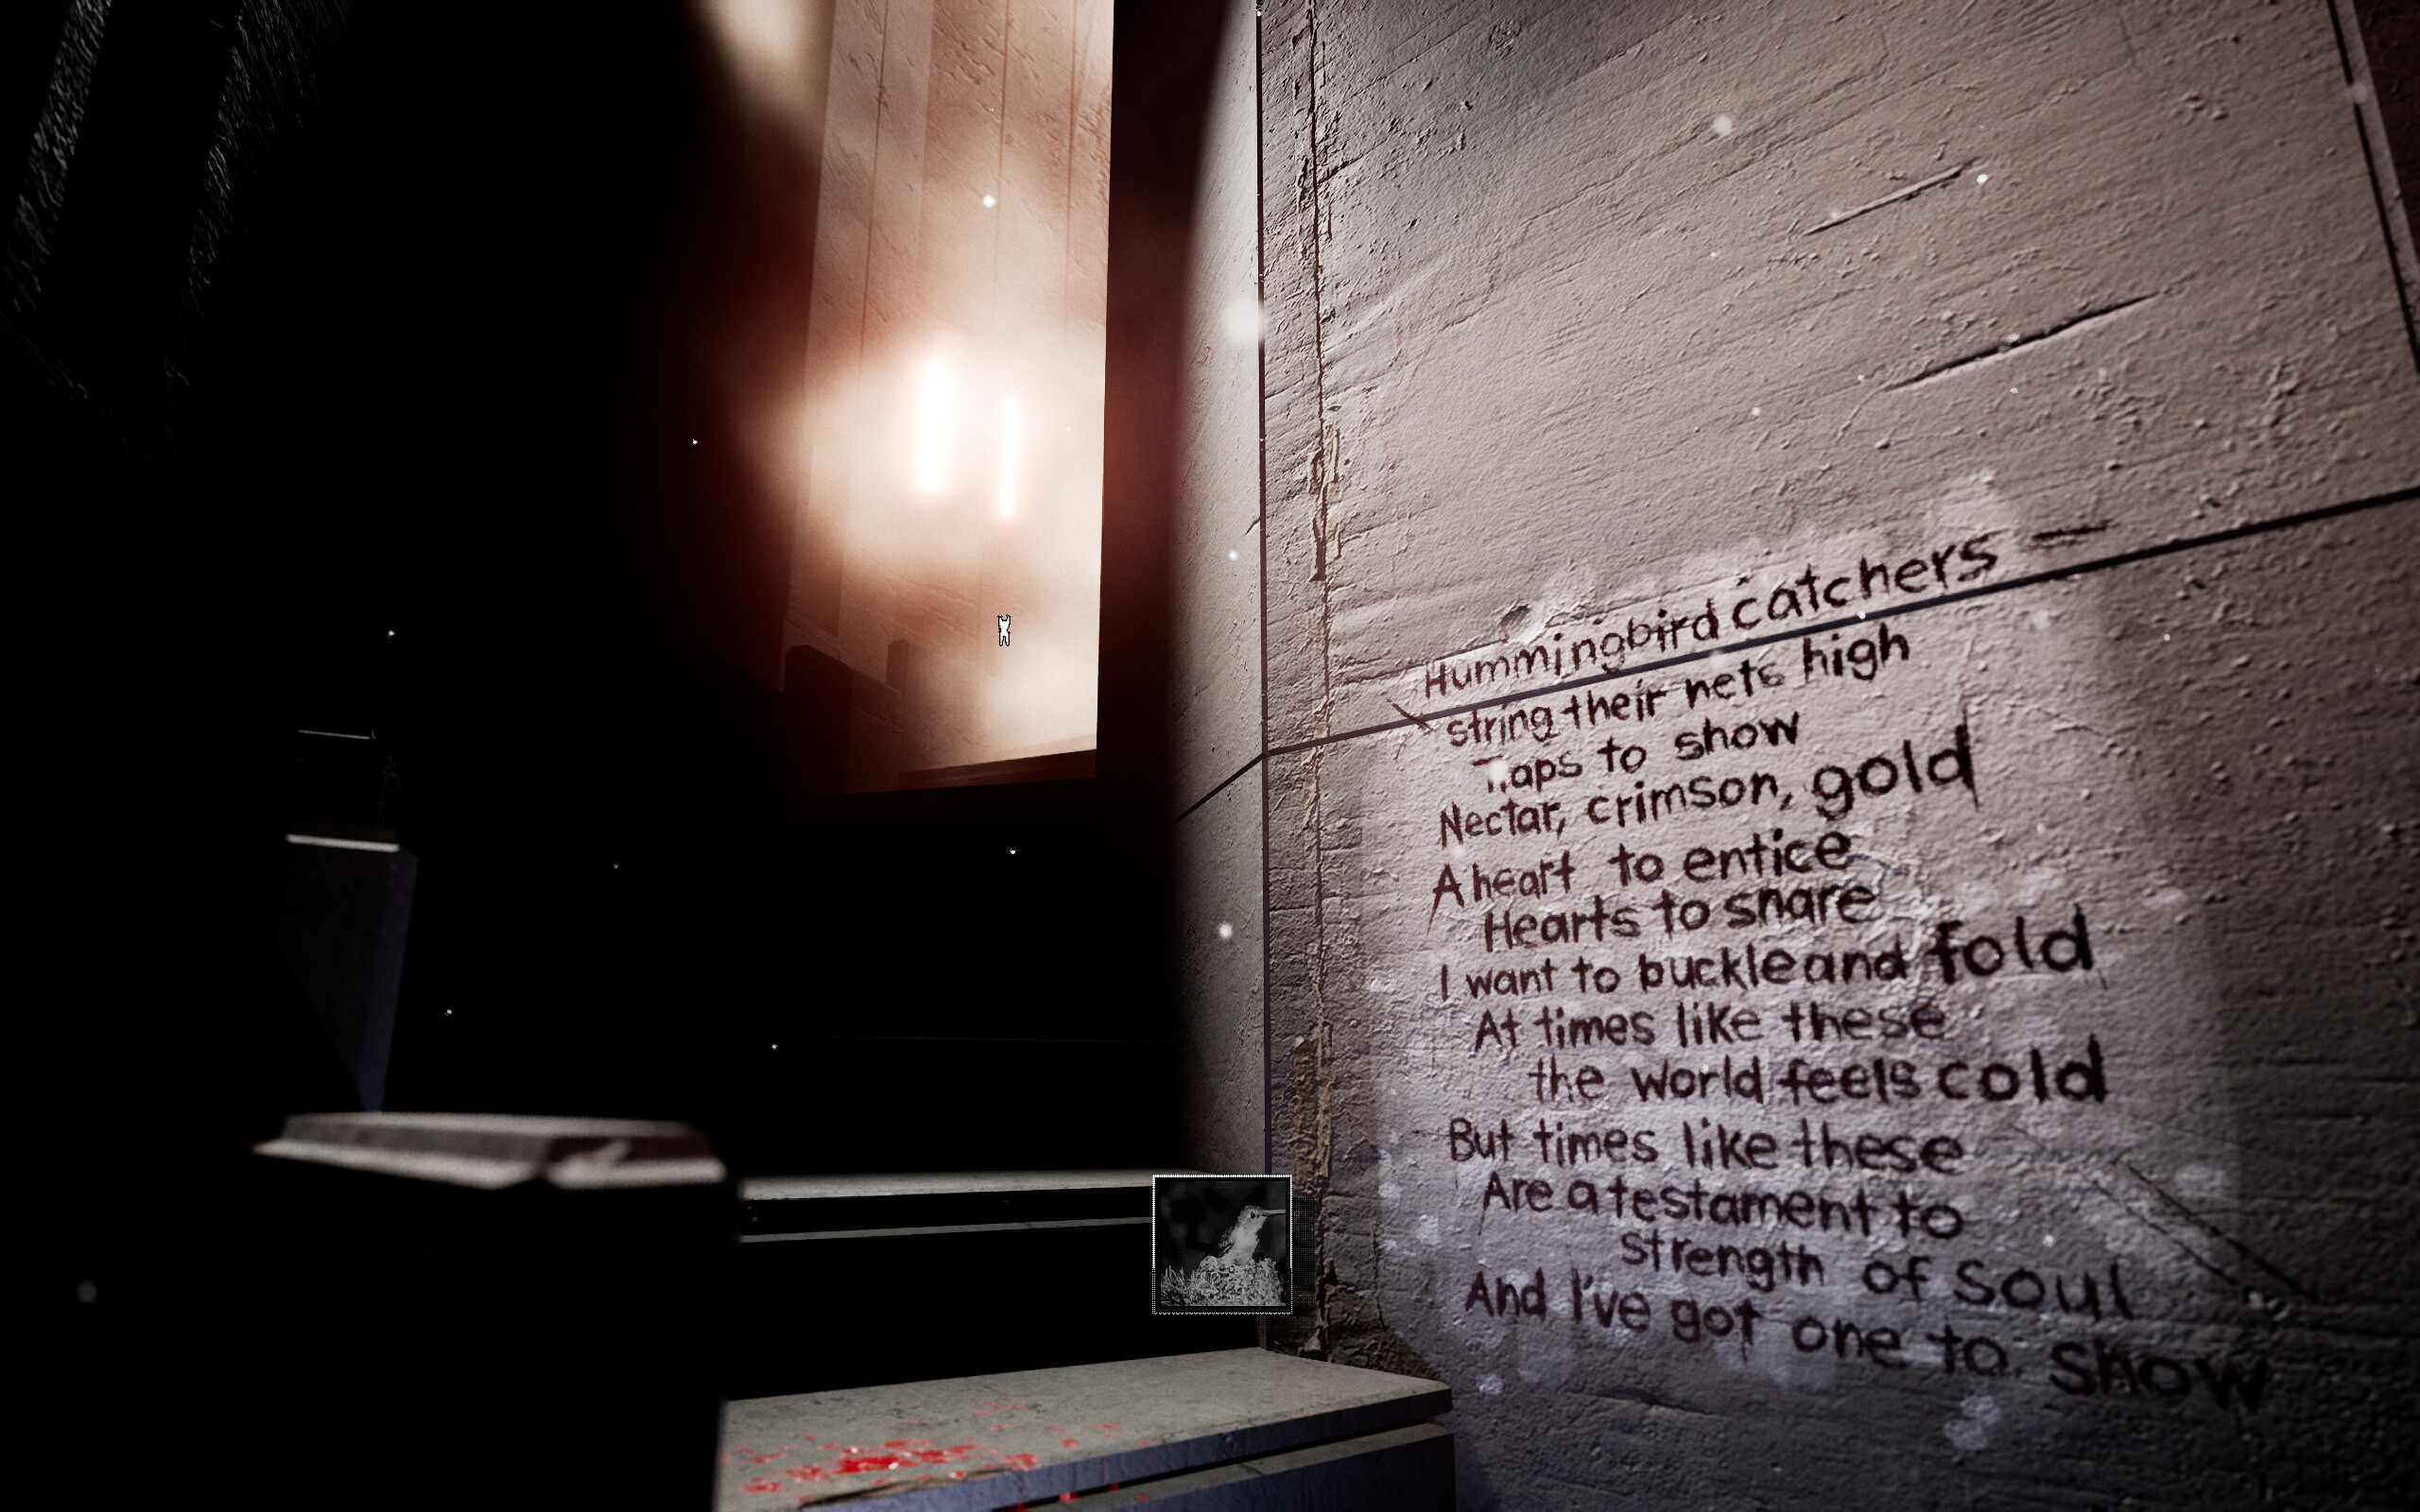 Hummingbird catchers —
string their nets high
Traps to show
Nectar, crimson, gold
A heart to entice
Hearts to snare
I want to buckle and fold
At times like these
the world feels cold
But times like these
Are a testament to
strength of soul
And I've got one to show